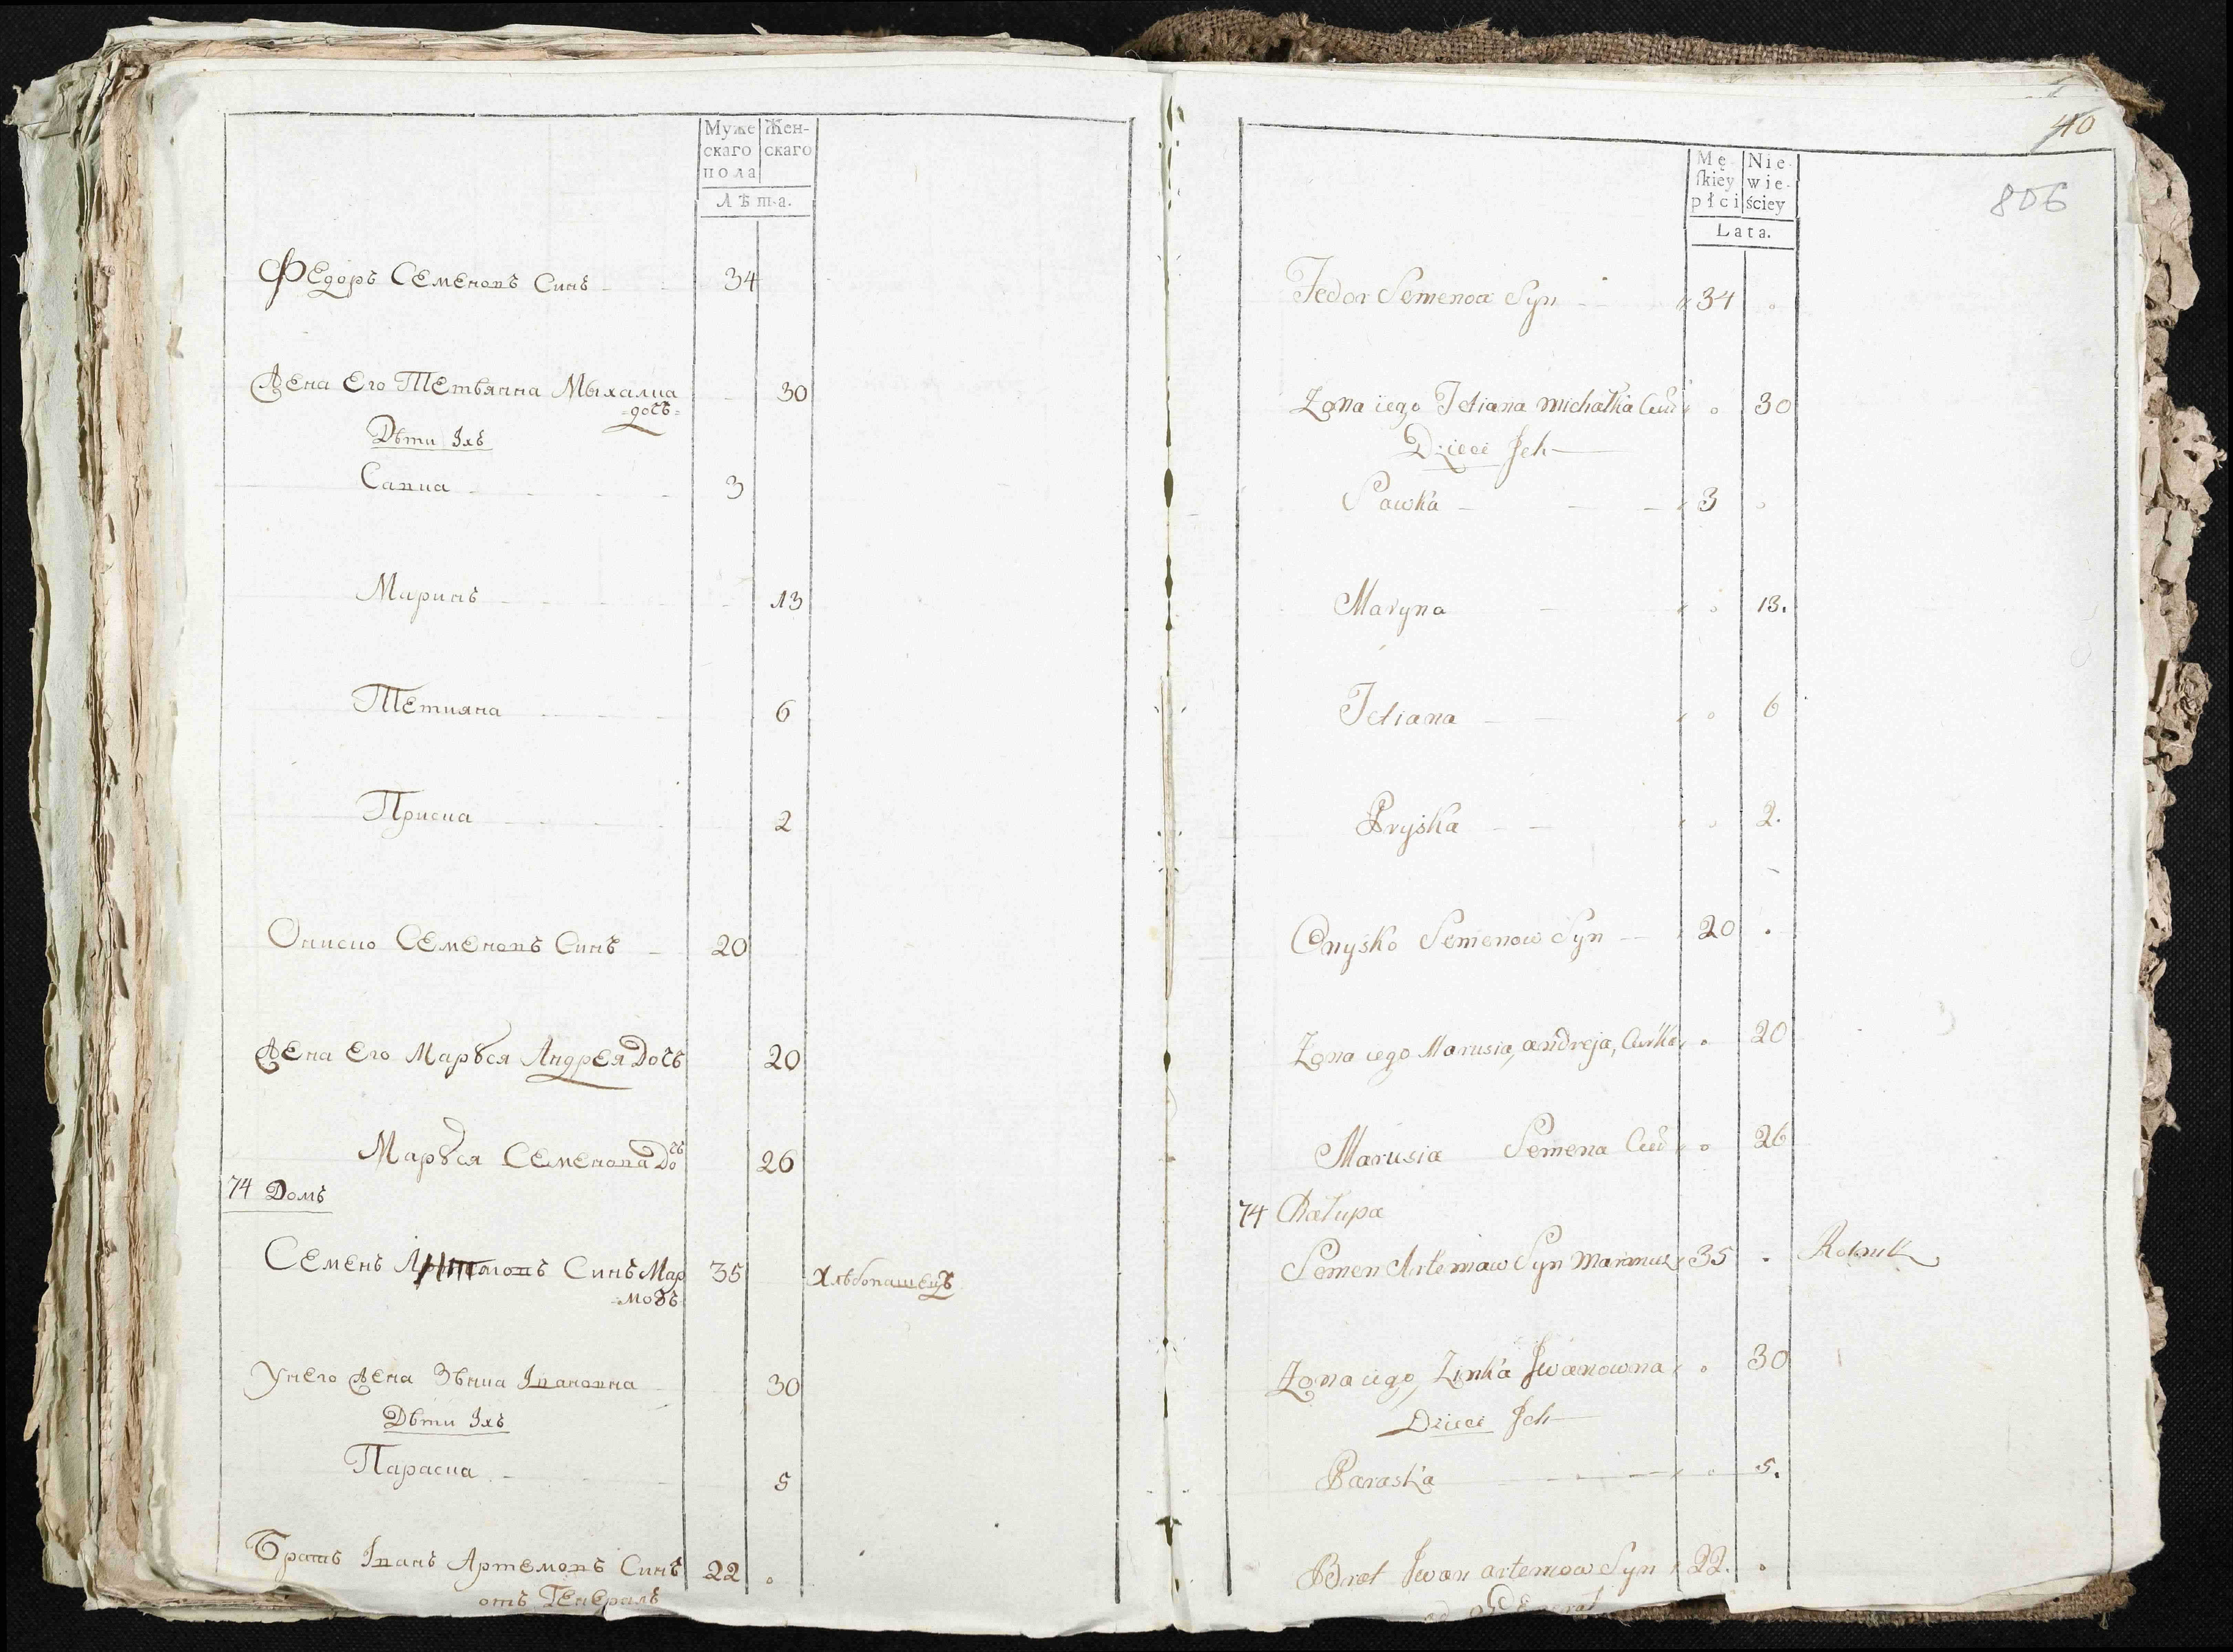 Муже Жен-
скаго скаго
пола
Лѣта.
Федоръ Семеновъ Синъ 34
Жена Его Тетьянна Мыхалка 30
=дочь=
Дѣти Іхъ
Савка 3
Маринъ 13
Тетияна 6
Приска 2
Ониско Семеновъ Синъ 20
Жена Его Маруся Андрея Дочь 20
Маруся Семенова Дочь 26
74 Домъ
Семенъ Артемовъ Синъ Мар 35 Хлѣбопашецъ
Унего Жена Зѣнка Івановна 30
Дѣти Іхъ
Параска 5
Братъ Іванъ Артемовъ Синъ 22
отъ Генералъ
40
806
Mę- Nie-
skiey wie-
płci ściey
Lata.
Fedor Semenow Syn 34
Zona iego Tetiana Michałka 30
Dzieci Ich
Sawka 3
Maryna 13.
Tetiana 6
Pryska 2.
Onysko Semenow Syn 20
Zona iego Marusia, Andreja, Curka 20
Marusia Semena 26
74 Chałupa
Semen Artemiaw Syn 35 Rolnik
Zona iego, Zinka Iwanowna 30
Dzieci Ich
Paraska 5.
Brat Iwan Artemow Syn 22.